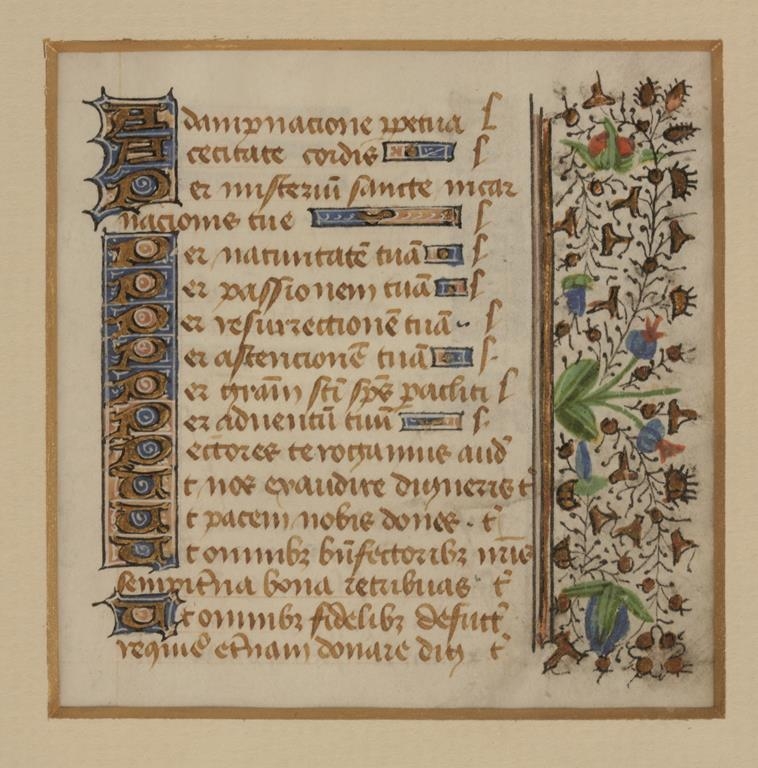 A dampnacione ppetua l
A cecitate cordis l
Per misteriū sancte incar
nacionis tue l
Per natiuitatē tuā l
Per passionem tuā l
Per resurrectionē tuā l
Per astencionē tuā l
Per grām scī sp̄s pacliti l
Per aduentū tuū l
Pectores te rogamus aud
Ut nos exaudire digneris t̄
Ut pacem nobis dones . t̄
Ut omnibꝫ bn̄fectoribꝫ nr̄is
sempit̄na bona retribuas t̄
Ut omnibꝫ fidelibꝫ defūct
requiē et̄nam donare dig t̄